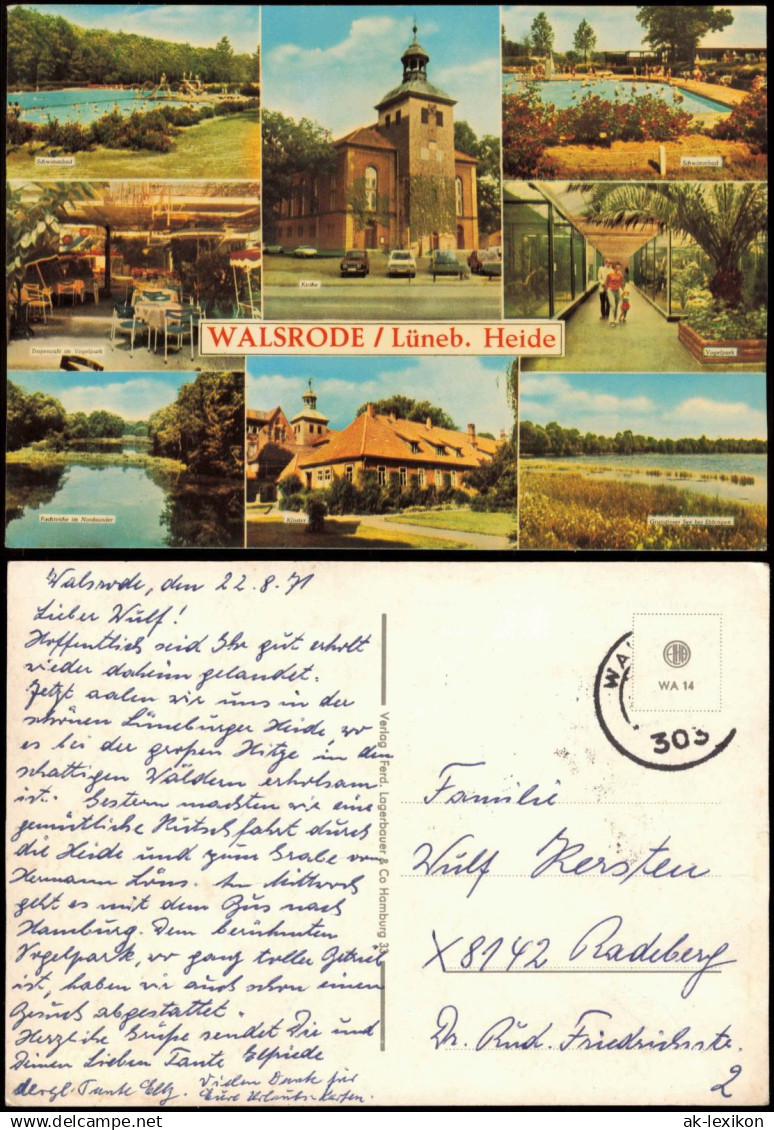 Schwimmbad
Kirche
Schwimmbad
Tropencafé im Vogelpark
WALSRODE / Lüneb. Heide
Vogelpark
Fischteiche im Nordsunder
Kloster
Grundloser See bei Ebbingen
Walsrode, den 22.8.71
Lieber Wulf!
Hoffentlich seid Ihr gut erholt
wieder daheim gelandet.
Jetzt aalen wir uns in der
schönen Lüneburger Heide, wo
es bei der großen Hitze in den
schattigen Wäldern erholsam
ist. Gestern machten wir eine
gemütliche Kutschfahrt durch
die Heide und zum Grabe von
Hermann Löns. Am Mittwoch
geht es mit dem Bus nach
Hamburg. Dem berühmten
Vogelpark, wo ganz toller Betrieb
ist, haben wir auch schon einen
Besuch abgestattet.
Herzliche Grüße sendet Dir und
Deinen Lieben Tante Elfriede
dergl. Tante Elly. Vielen Dank für
Eure Urlaubs-Karten.
Verlag Ferd. Lagerbauer & Co Hamburg 33
WA 14
WA
303
Familie
Wulf Kersten
X8142 Radeberg
Dr. Rud. Friedrichsstr.
2
ak-lexikon.com